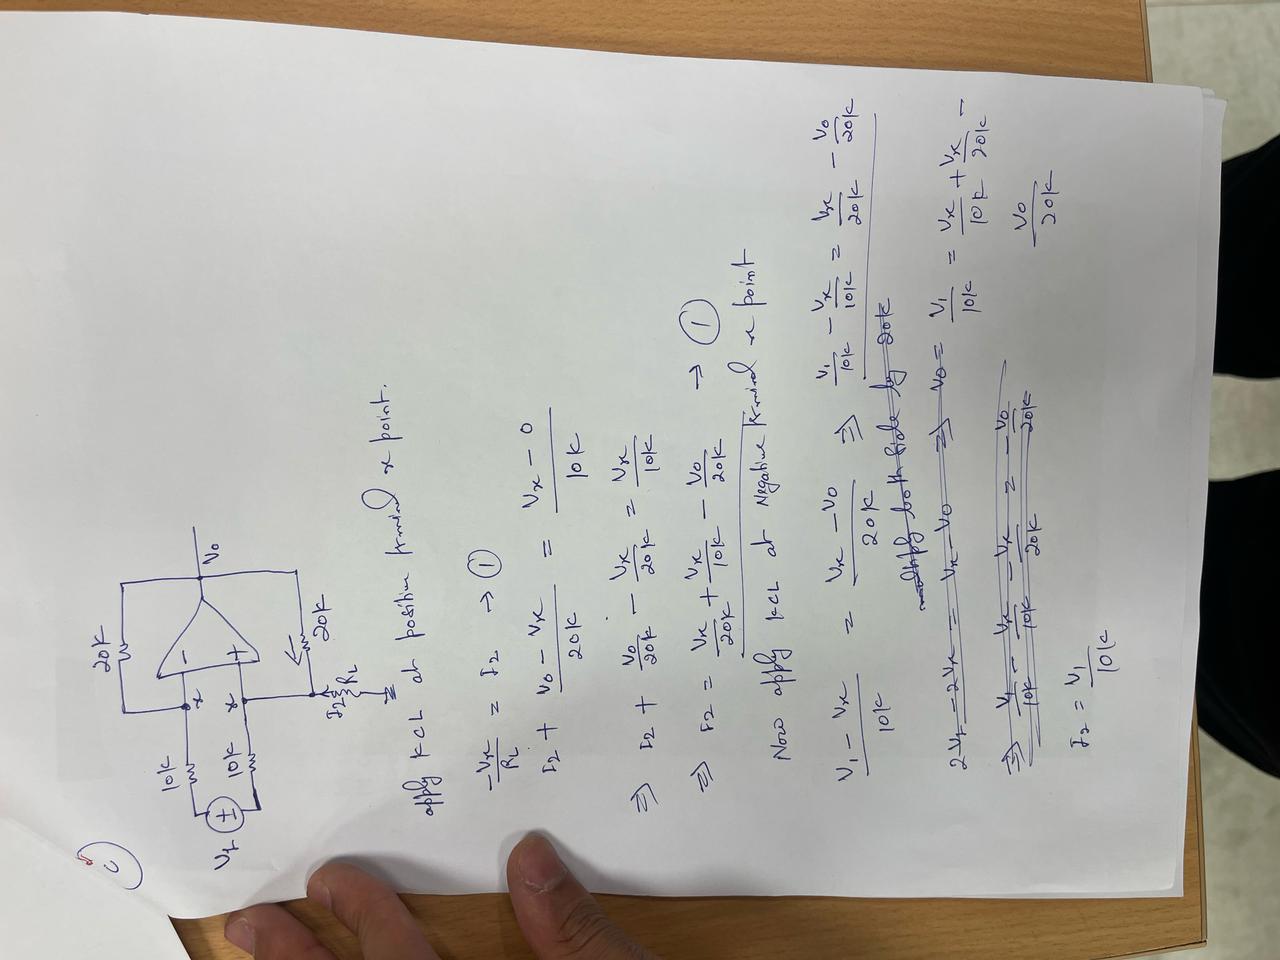 20k
10k
10k
V1
±
−
+
x
x
V0
20k
I2
RL
apply KCL at positive terminal x point.
-Vx/RL = I2 → ①
I2 + V0 - Vx/20k = Vx - 0/10k
⇒ I2 + V0/20k - Vx/20k = Vx/10k
⇒ I2 = Vx/20k + Vx/10k - V0/20k → ①
Now apply KCL at Negative terminal x point
V1 - Vx/10k = Vx - V0/20k ⇒ V1/10k - Vx/10k = Vx/20k - V0/20k
multiply both side by 20k
2V1 - 2Vx = Vx - V0 ⇒ V0 = V1/10k = Vx/10k + Vx/20k -
V0/20k
⇒ V1/10k - Vx/10k - Vx/20k = -V0/20k
I2 = V1/10k